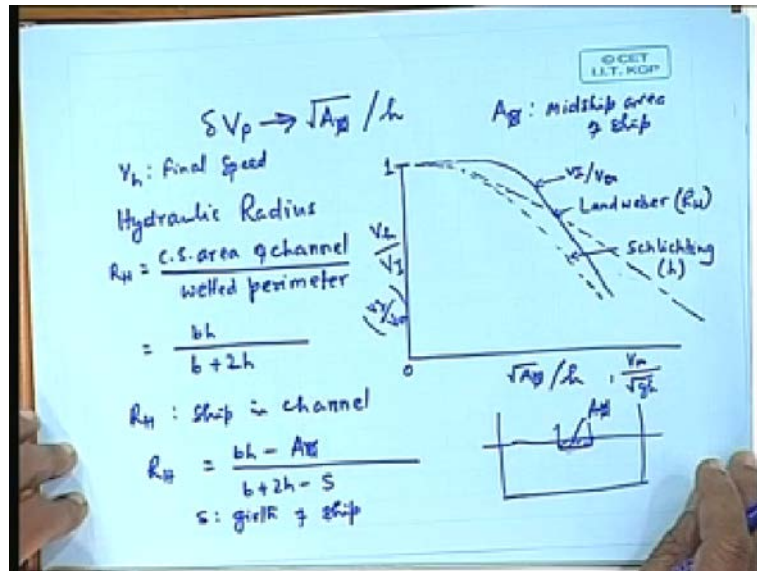 © CET
I.I.T. KGP
δVp → √A⊠ / h
A⊠ : Midship area
of ship
Vh : Final Speed
Hydraulic Radius
RH = c.s. area of channel
wetted perimeter
= bh
b + 2h
RH : Ship in channel
RH = bh - A⊠
b + 2h - S
S : girth of ship
1
Vh
VI
VI/V∞
0
VI/V∞
Landweber (RH)
Schlichting
(h)
√A⊠ / h , V∞
√gh
A⊠